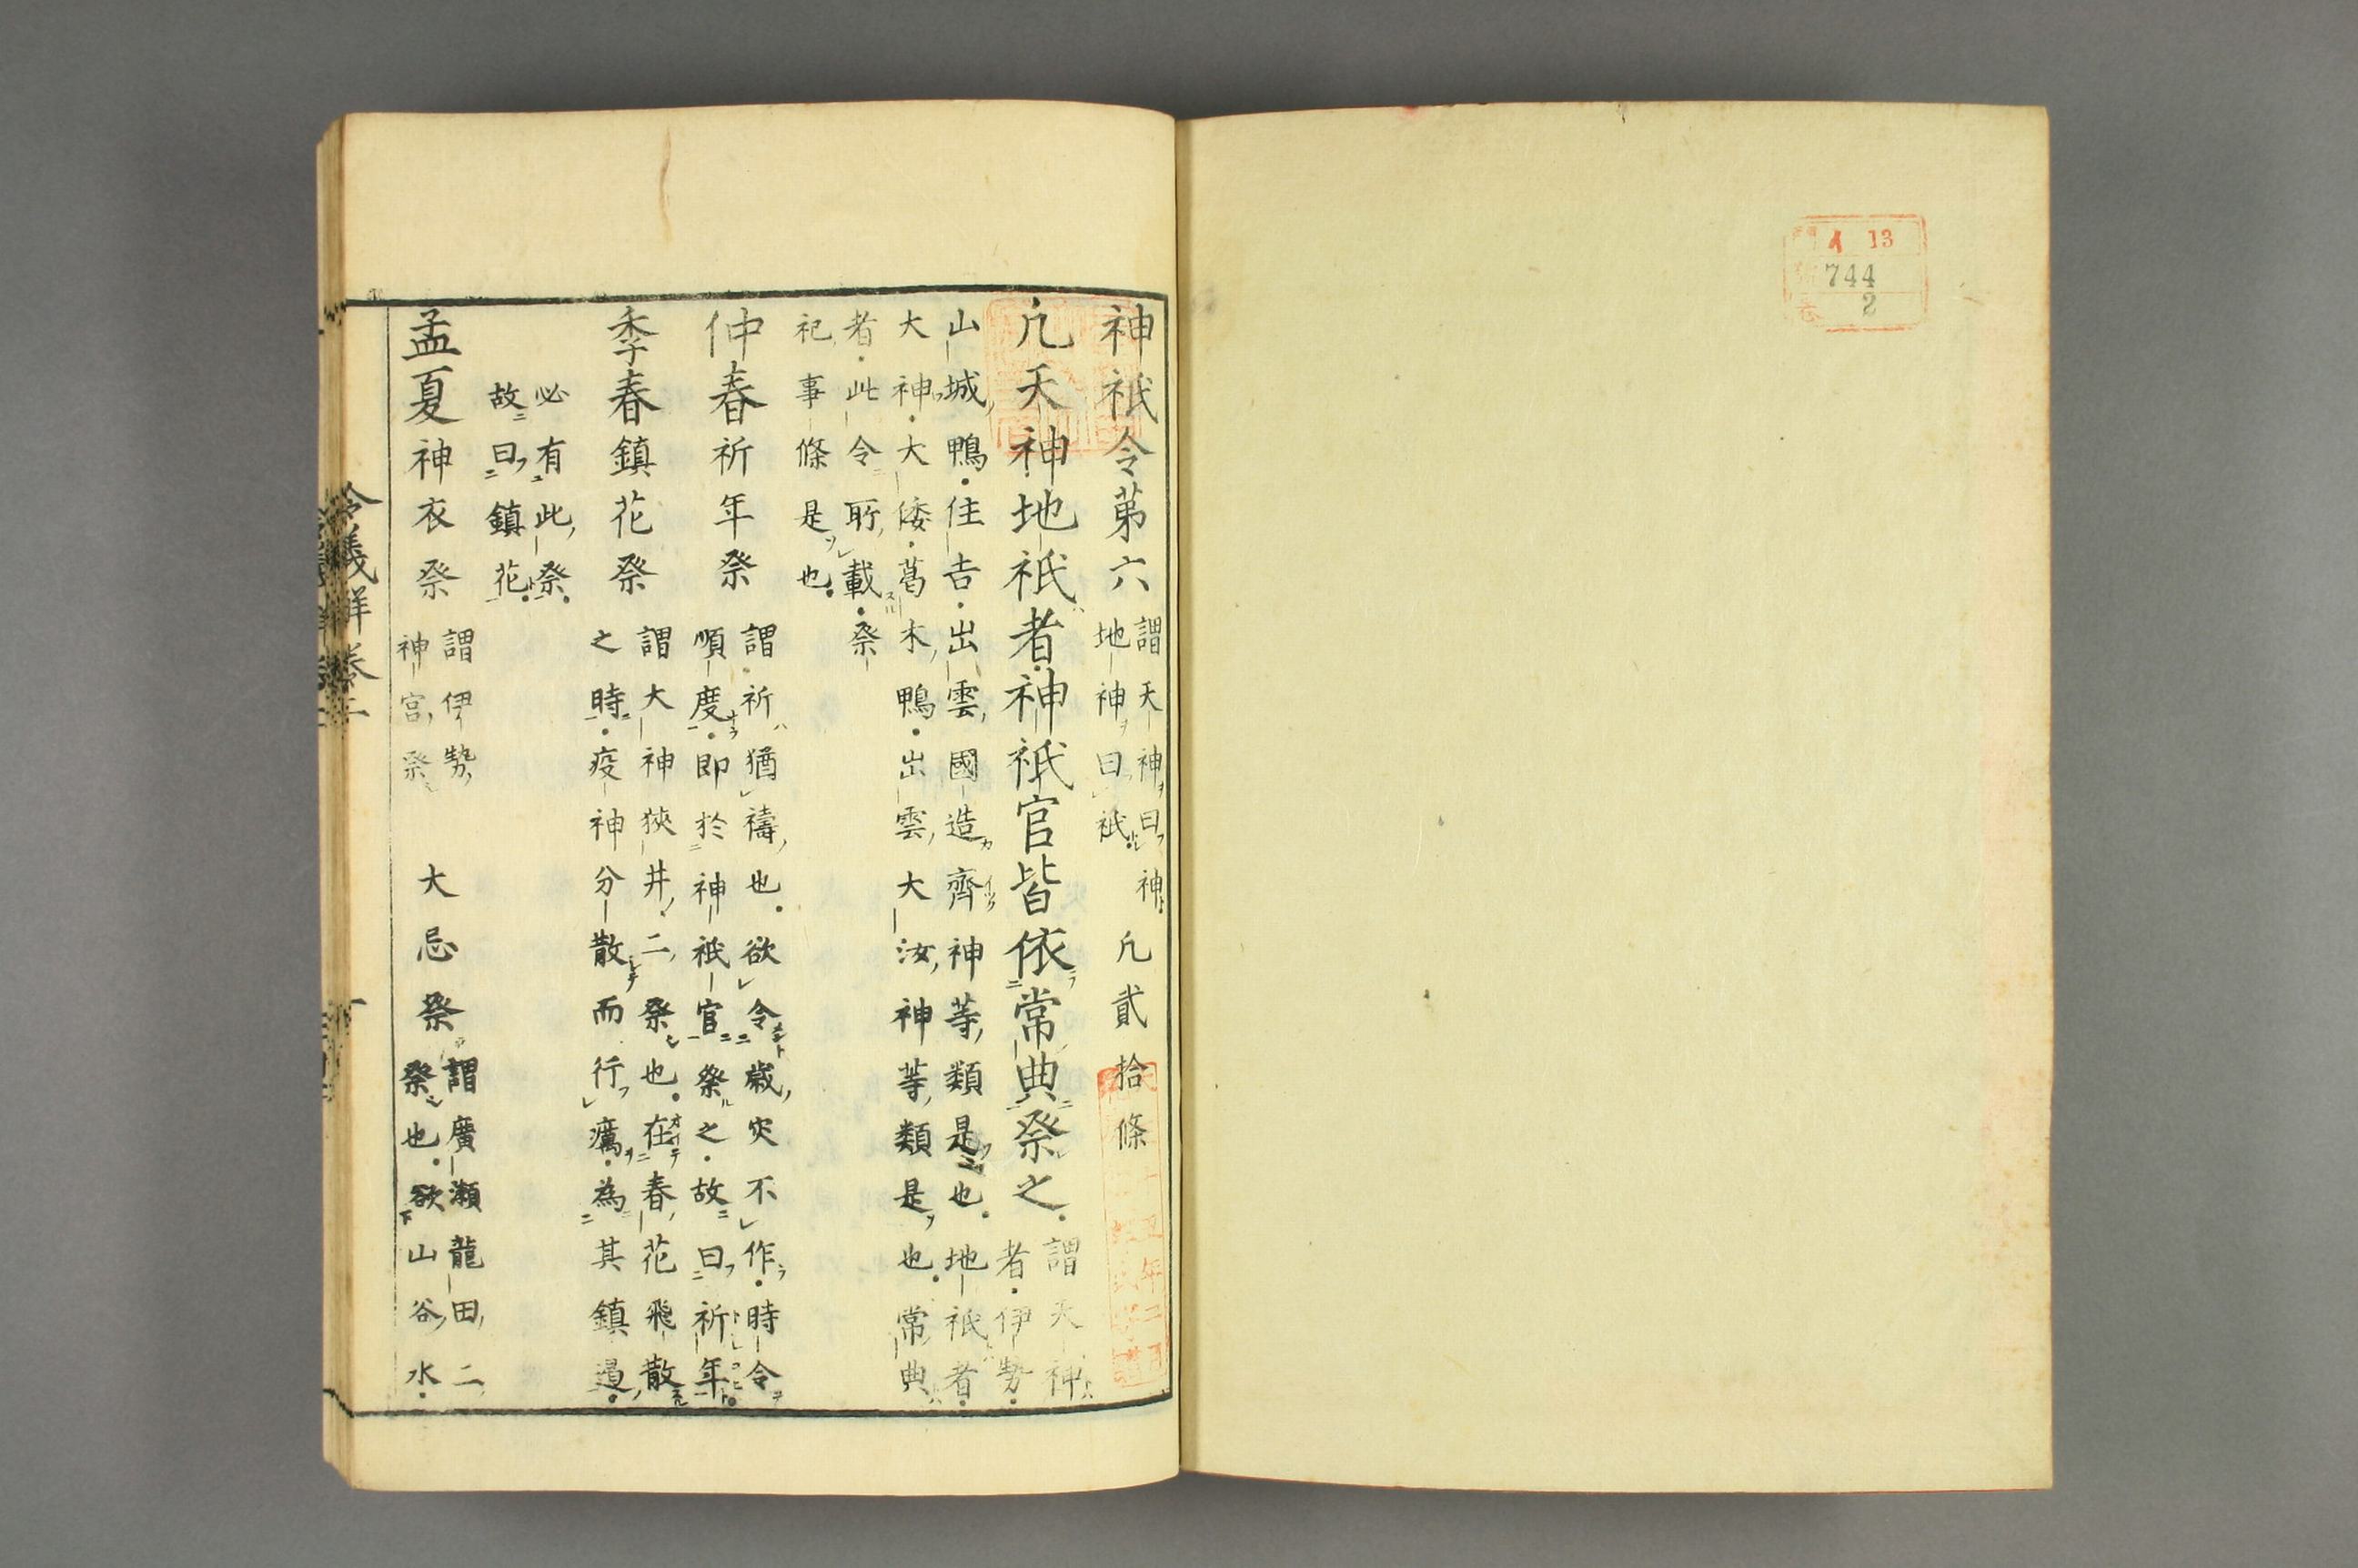 イ 13
744
2
神祇令第六 謂天神曰神 地神曰祇 凡貳拾條
凡天神地祇者神祇官皆依常典祭之 謂天神 者伊勢
山城鴨住吉出雲國造齊神等類是也地祇者
大神大倭葛木鴨出雲大汝神等類是也常典
者此令所載祭
祀事條是也
仲春祈年祭 謂祈猶禱也欲令歳灾不作時令 順度即於神祇官祭之故曰祈年
季春鎮花祭 謂大神狹井二祭也在春花飛散 之時疫神分散而行癘為其鎮遏
必有此祭
故曰鎮花
孟夏神衣祭 謂伊勢 神宮祭 大忌祭 謂廣瀬龍田二 祭也欲山谷水
令義解卷二